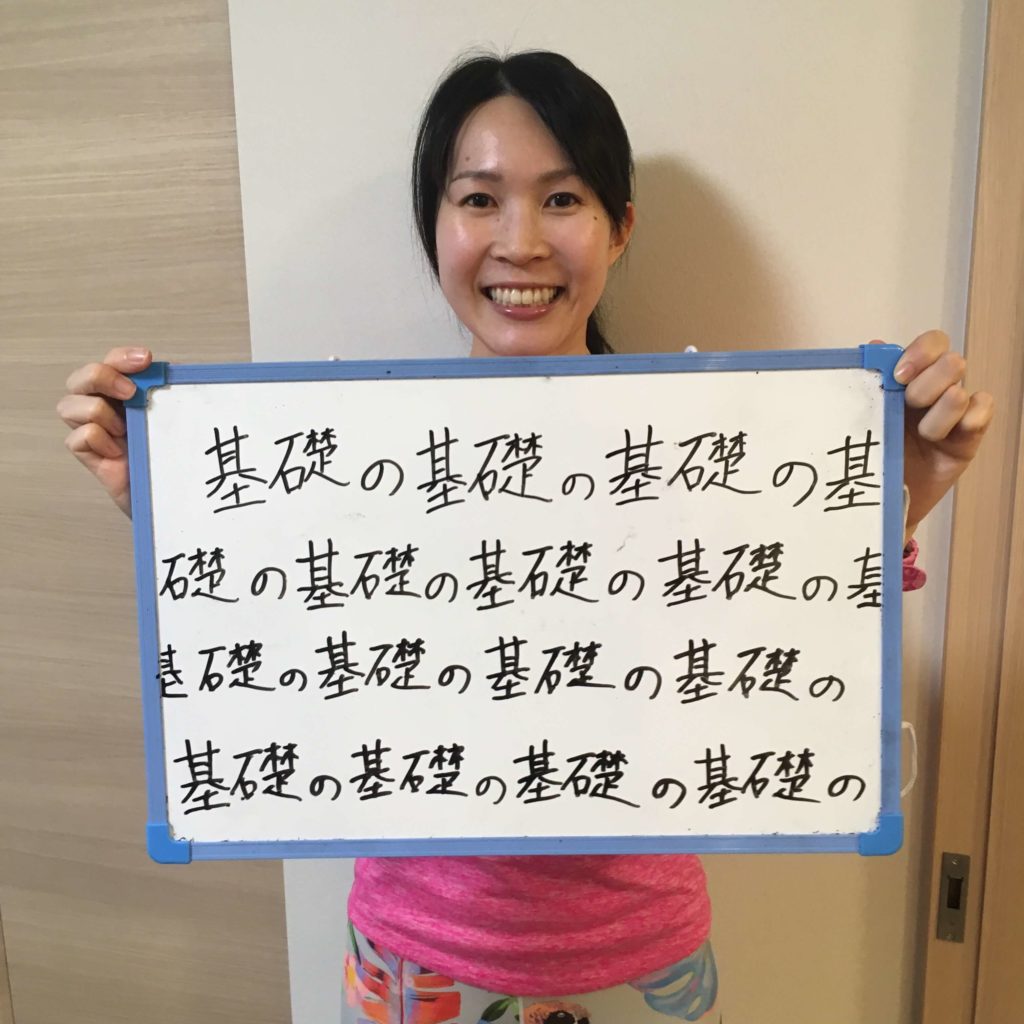 基礎の基礎の基礎の基
礎の基礎の基礎の基礎の基
基礎の基礎の基礎の基礎の
基礎の基礎の基礎の基礎の